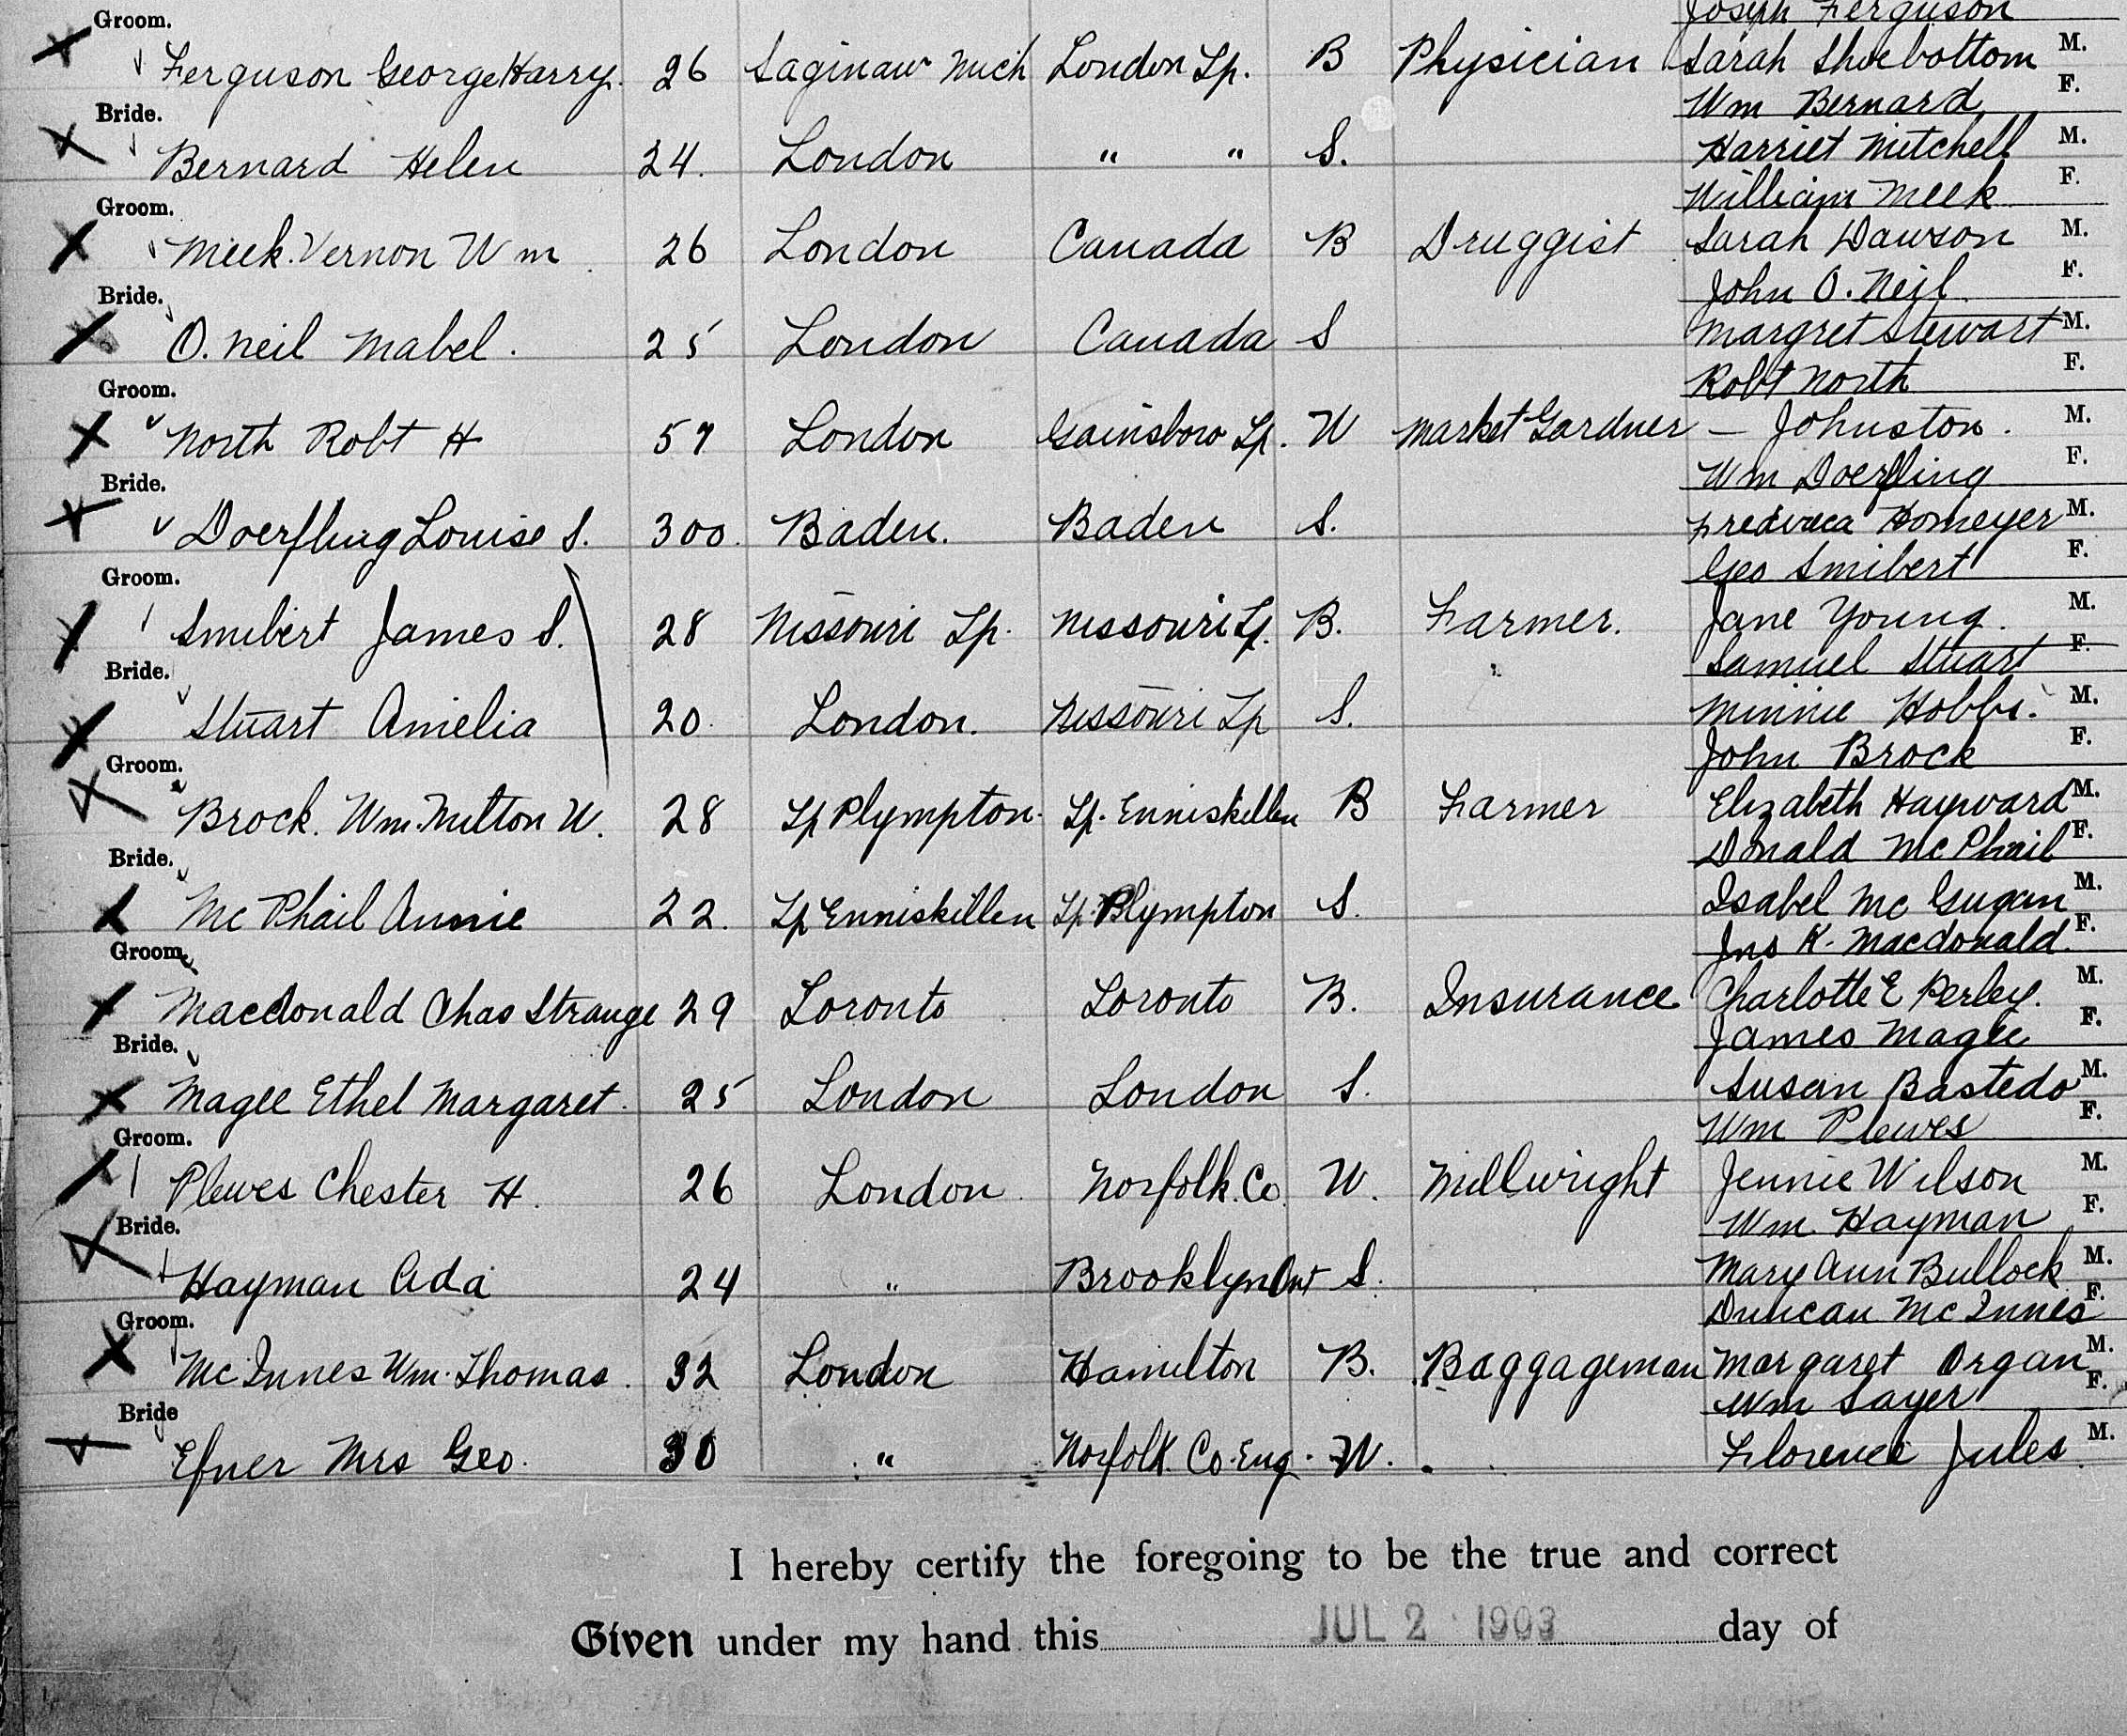 Joseph Ferguson
Groom.
Ferguson George Harry. 26 Saginaw Mich London Tp. B Physician Sarah Shoebottom M.
Wm Bernard F.
Bride.
Bernard Helen 24. London " " S. Harriet Mitchell M.
William Meek F.
Groom.
Meek Vernon Wm 26 London Canada B Druggist Sarah Dawson M.
John O. Neil F.
Bride.
O. Neil Mabel. 25 London Canada S Margret Stewart M.
Robt North F.
Groom.
North Robt H 57 London Gainsboro Tp. W Market Gardner — Johnston. M.
Wm Doerfling F.
Bride.
Doerfling Louise S. 300. Baden. Baden S. Homeyer M.
Geo Smibert F.
Groom.
Smibert James S. 28 Nissouri Tp. Nissouri Tp. B. Farmer. Jane Young. M.
Samuel Stuart F.
Bride.
Stuart Amelia 20. London. Nissouri Tp S. Minnie Hobbs. M.
John Brock F.
Groom.
Brock. Wm. Milton W. 28 Tp Plympton. Tp. Enniskillen B Farmer Elizabeth Hayward M.
Donald McPhail F.
Bride.
McPhail Annie 22. Tp Enniskillen Tp. Plympton S. Isabel McGugan M.
Jno K. Macdonald. F.
Groom.
Macdonald Chas Strange 29 Toronto Toronto B. Insurance Charlotte E Perley. M.
James Magee F.
Bride.
Magee Ethel Margaret. 25 London London S. Susan Bastedo M.
Wm Plewes F.
Groom.
Plewes Chester H. 26 London Norfolk. Co W. Millwright Jennie Wilson M.
Wm. Hayman F.
Bride.
Hayman Ada 24 " Brooklyn Ont S. Mary Ann Bullock M.
Duncan McInnes F.
Groom.
McInnes Wm. Thomas. 32 London Hamilton B. Baggageman Margaret Organ M.
Wm Sayer F.
Bride
Efner Mrs Geo. 30 " Norfolk Co. Eng. W. Florence Jules. M.
I hereby certify the foregoing to be the true and correct
Given under my hand this JUL 2 1903 day of